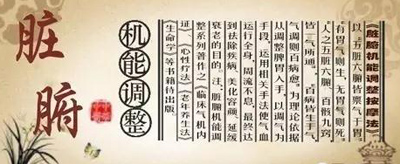 脏腑
机能调整
《脏腑机能调整按摩法》
以“五脏六腑皆禀气于胃，
有胃气则生，无胃气则死
人之五脏六腑，百骸九窍
皆一气所通，百病皆生于气
气调则百病愈。”为理论依据
从调整脾胃入手，以调气为
手段，运用相关手法使气血
运行全身，周流不息，最终达
到祛除疾病，美化容颜，延缓
衰老的目的。注：脏腑机能调
整系列著作之《临床气机内
证》《心性疗法》《老年养生法
生命学》等书籍待出版。